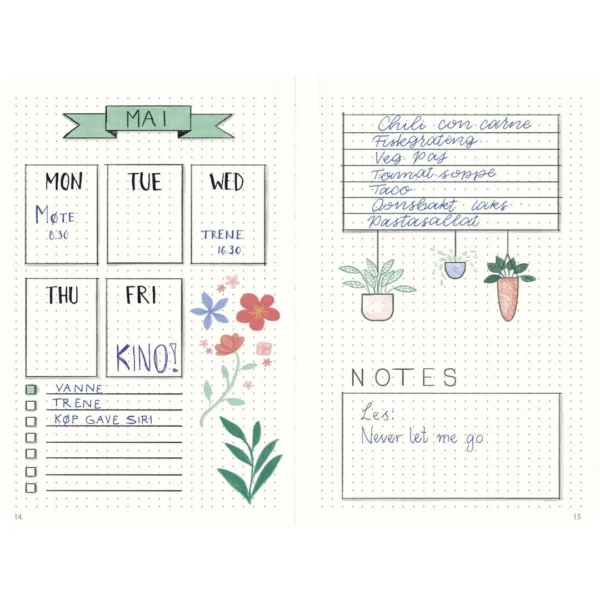 MAI
MON
TUE
WED
MØTE
8.30
TRENE
16.30
THU
FRI
KINO!
VANNE
TRENE
KØP GAVE SIRI
14
Chili con carne
Fiskgrateng
Veg
Tomat soppe
Taco
Ovnsbakt laks
Pastasallat
NOTES
Les:
Never let me go
15